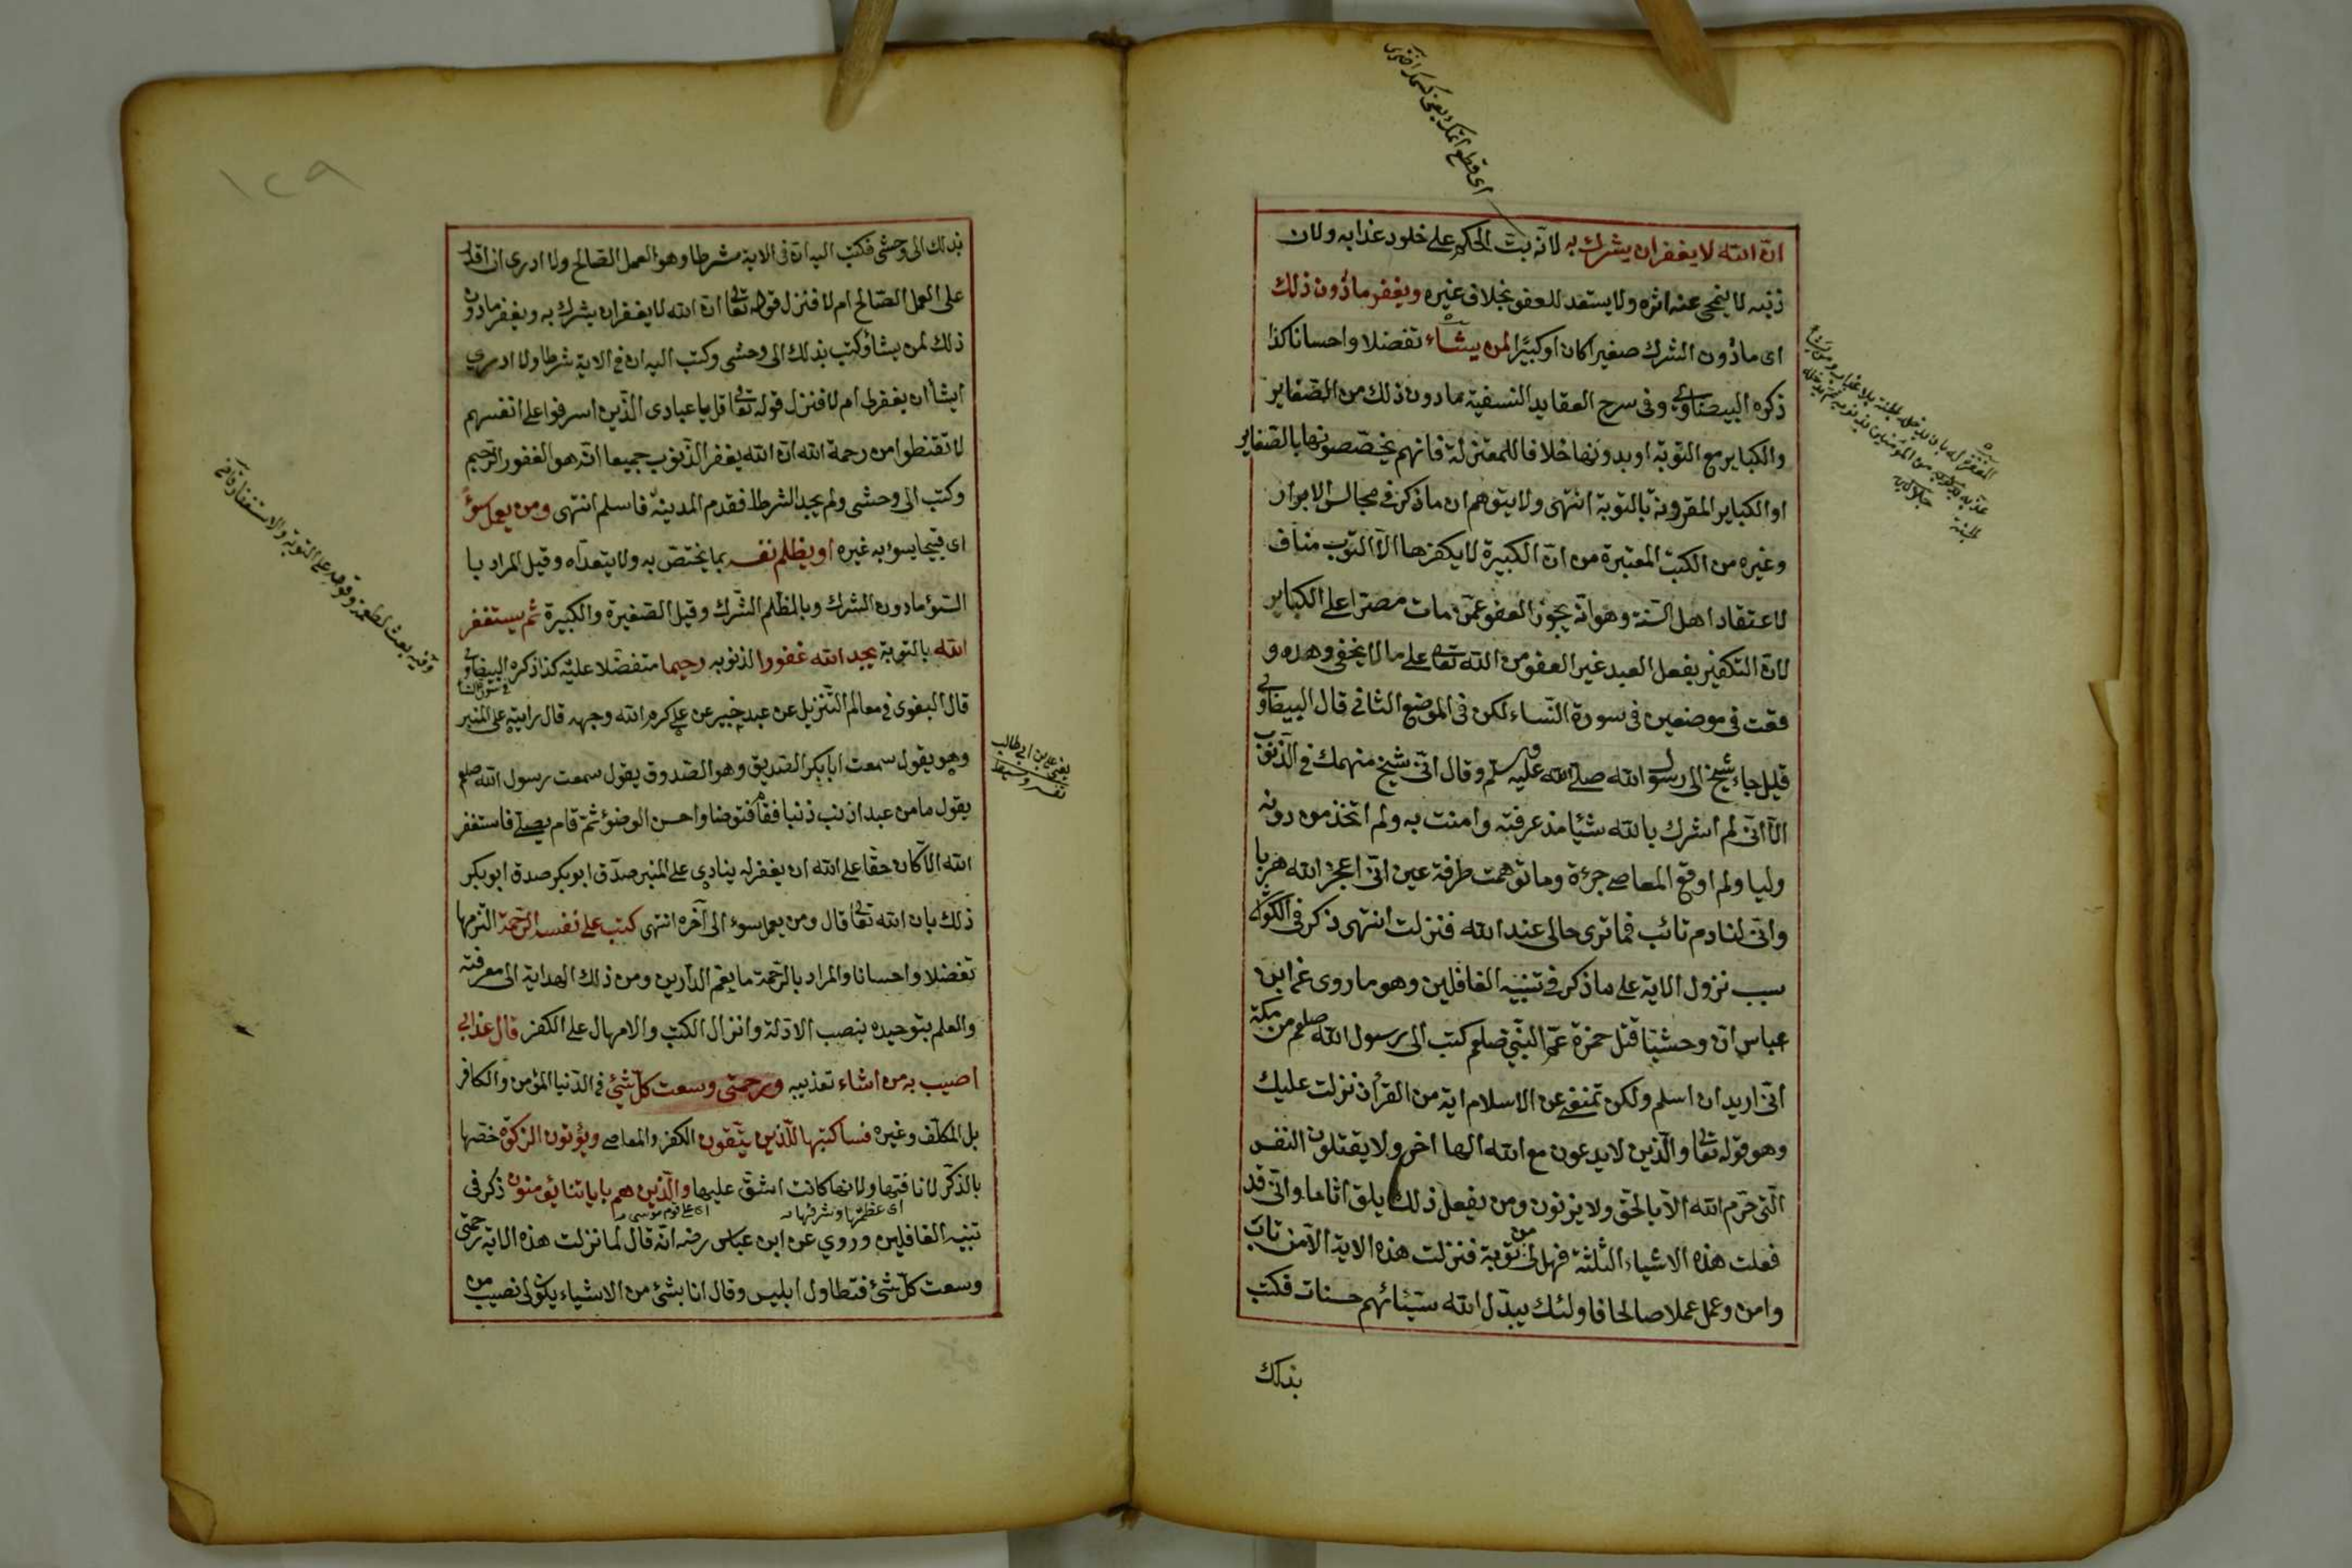 ان الله لا يغفر ان يشرك به لانه بت الحكم على خلود عذابه ولان
ذنبه لا ينمحى عنه اثره ولا يستعد للعفو بخلاف غيره ويغفر مادون ذلك
اى مادون الشرك صغيرا كان او كبيرا لمن يشاء تفضلا واحسانا كذا
ذكره البيضاوى وفى شرح العقايد النسفية مادون ذلك من الصغاير
والكباير مع التوبة او بدونها خلافا للمعتزلة فانهم يخصصونها بالصغاير
او الكباير المقرونة بالتوبة انتهى ولا يتوهم ان ما ذكر فى مجالس الابرار
وغيره من الكتب المعتبرة من ان الكبيرة لا يكفرها الا التوب مناف
لاعتقاد اهل السنة وهو انه يجوز العفو عمن مات مصرا على الكباير
لان التكفير بفعل العبد غير العفو من الله تعالى على ما لا يخفى وهذه و
قعت فى موضعين فى سورة النساء لكن فى الموضع الثانى قال البيضاوى
قيل جاء شيخ الى رسول الله صلى الله عليه وسلم وقال انى شيخ منهمك فى الذنوب
الا انى لم اشرك بالله شيئا مذ عرفته وامنت به ولم اتخذ من دونه
وليا ولم اوقع المعاصى جرءة وما توهمت طرفة عين انى اعجز الله هربا
وانى لنادم تائب فما ترى حالى عند الله فنزلت انتهى ذكر فى
سبب نزول الاية على ما ذكر فى تنبيه الغافلين وهو ما روى عن ابن
عباس ان وحشيا قتل حمزة عم النبى صلعم كتب الى رسول الله صلعم من مكة
انى اريد ان اسلم ولكن تمنعنى عن الاسلام اية من القرأن نزلت عليك
وهو قوله تعالى والذين لا يدعون مع الله الها اخر ولا يقتلون النفس
التى حرم الله الا بالحق ولا يزنون ومن يفعل ذلك يلق اثاما وانى قد
فعلت هذه الاشياء الثلثة فهل لى من توبة فنزلت هذه الاية الا من تاب
وامن وعمل عملا صالحا فاولئك يبدل الله سيئاتهم حسنات فكتب
بذلك
١٢٩
بذلك الى وحشى فكتب اليه ان فى الاية شرطا وهو العمل الصالح ولا ادرى انى اقدر
على العمل الصالح ام لا فنزل قوله تعالى ان الله لا يغفر ان يشرك به ويغفر مادون
ذلك لمن يشاء وكتب بذلك الى وحشى وكتب اليه ان فى الاية شرطا ولا ادرى
ايشأ ان يغفر لى ام لا فنزل قوله تعالى قل يا عبادى الذين اسرفوا على انفسهم
لا تقنطوا من رحمة الله ان الله يغفر الذنوب جميعا انه هو الغفور الرحيم
وكتب الى وحشى ولم يجد الشرط فقدم المدينة فاسلم انتهى ومن يعمل سوءا
اى قبيحا يسوء به غيره او يظلم نفسه بما يختص به ولا يتعداه وقيل المراد با
السوء مادون الشرك وبالظلم الشرك وقيل الصغيرة والكبيرة ثم يستغفر
الله بالتوبة يجد الله غفورا لذنوبه رحيما متفضلا عليه كذا ذكره البيضاوى
قال البغوى فى معالم التنزيل عن عبد خير عن على كرم الله وجهه قال رايته على المنبر
وهو يقول سمعت ابا بكر الصديق وهو الصدوق يقول سمعت رسول الله صلعم
يقول ما من عبد اذنب ذنبا فقام فتوضا واحسن الوضوء ثم قام يصلى فاستغفر
الله الا كان حقا على الله ان يغفر له ينادى على المنبر صدق ابو بكر صدق ابو بكر
ذلك بان الله تعالى قال ومن يعمل سوء الى آخره انتهى كتب على نفسه الرحمة التزمها
تفضلا واحسانا والمراد بالرحمة ما يعم الدارين ومن ذلك الهداية الى معرفته
والعلم بتوحيده بنصب الادلة وانزال الكتب والامهال على الكفر قال عذابى
اصيب به من اشاء تعذيبه ورحمتى وسعت كل شئ فى الدنيا المؤمن والكافر
بل المكلف وغيره فساكتبها للذين يتقون الكفر والمعاصى ويؤتون الزكوة خصها
بالذكر لانافتها ولانها كانت اشق عليهم والذين هم باياتنا يؤمنون ذكر فى
تنبيه الغافلين وروي عن ابن عباس رضه انه قال لما نزلت هذه الاية رحمتى
وسعت كل شئ فتطاول ابليس وقال انا بشئ من الاشياء يكون لى نصيب من